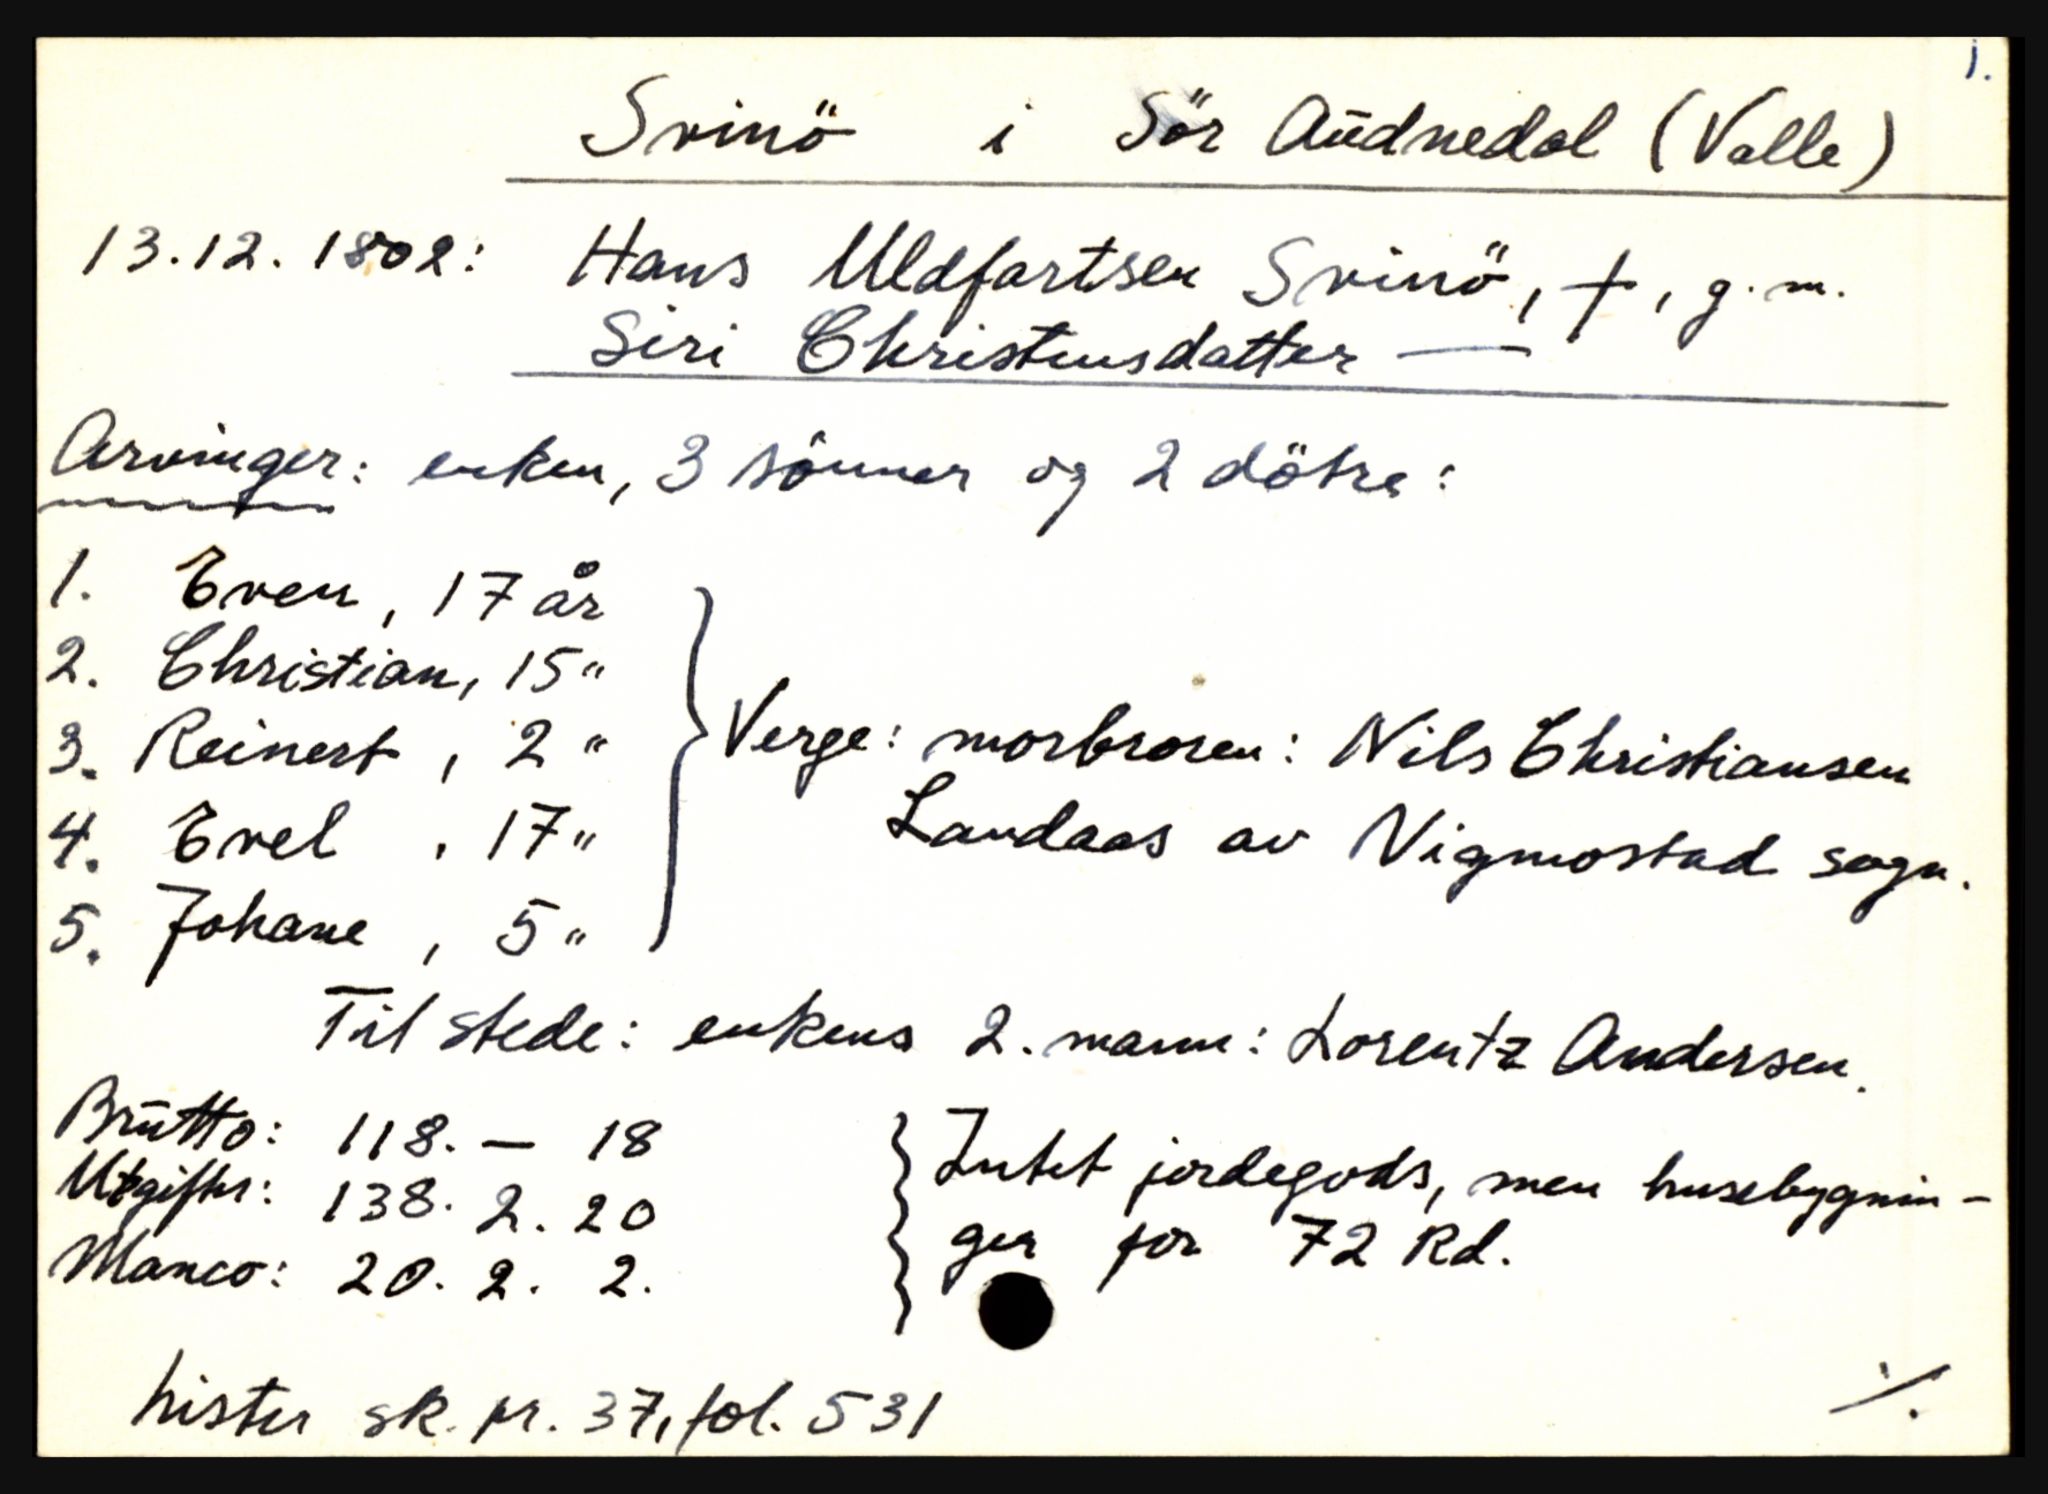 1.
Svinö i Sör Audnedal (Valle)
13.12.1802: Hans Uldfartsen Svinö, †, g.m.
Siri Christensdatter —
Arvinger: enken, 3 sönner og 2 dötre:
1. Even, 17 år
2. Christian, 15 "
3. Reinert, 2 "
4. Evel, 17 "
5. Johane, 5 "
Verge: morbroren: Nils Christiansen
Landaas av Vigmostad sogn.
Til stede: enkens 2. mann: Lorentz Andersen.
Brutto: 118. — 18
Utgifter: 138. 2. 20
Manco: 20. 2. 2.
Intet jordegods, men husebygnin-
ger for 72 Rd.
Lister sk. pr. 37, fol. 531
./.